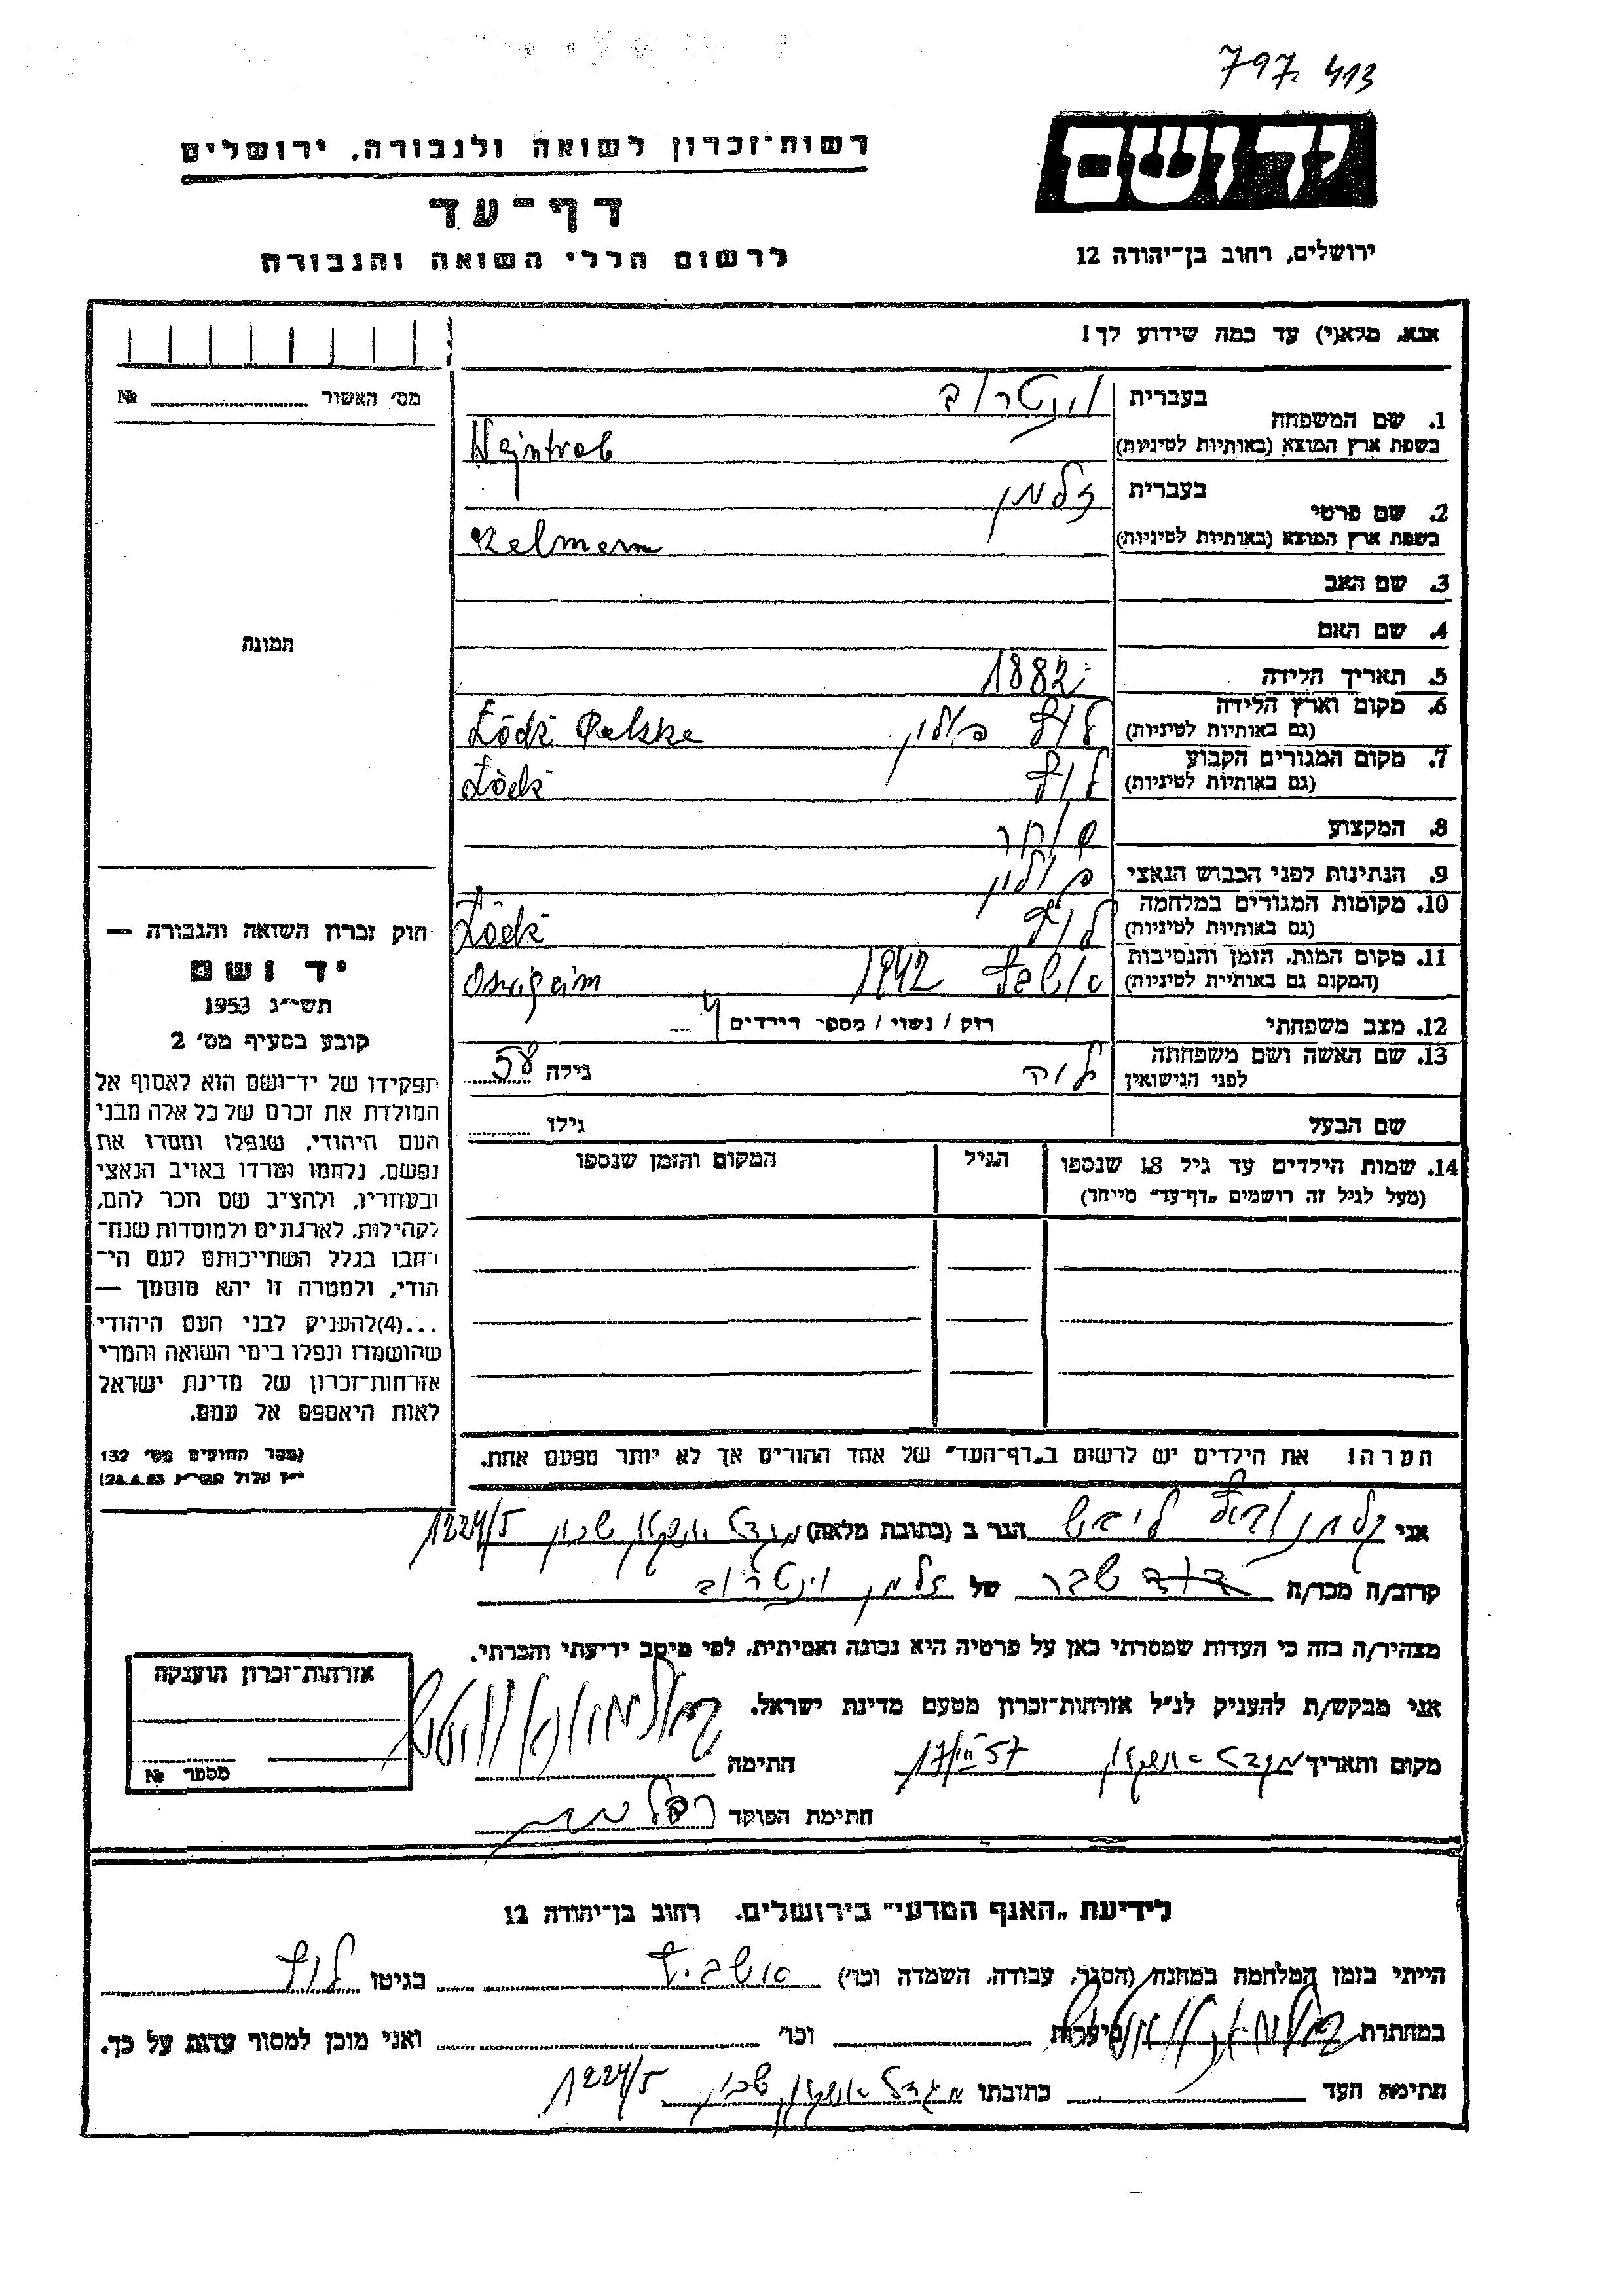 797. 413
יד ושם
רשות־זכרון לשואה ולגבורה, ירושלים
דף־עד
ירושלים, רחוב בן־יהודה 12
לרשום חללי השואה והגבורה
אנא, מלא(י) עד כמה שידוע לך!
מס׳ האשור № 
1. שם המשפחה
בעברית וינטרוב
בשפת ארץ המוצא (באותיות לטיניות) Wajntrob
2. שם פרטי
בעברית זלמן
בשפת ארץ המוצא (באותיות לטיניות)
3. שם האב
4. שם האם
תמונה
5. תאריך הלידה 1882
6. מקום וארץ הלידה
(גם באותיות לטיניות) לודז פולין Łódź Polska
7. מקום המגורים הקבוע
(גם באותיות לטיניות) לודז Łódź
8. המקצוע סוחר
9. הנתינות לפני הכבוש הנאצי פולין
10. מקומות המגורים במלחמה
(גם באותיות לטיניות) לודז Łódź
11. מקום המות, הזמן והנסיבות
(המקום גם באותיות לטיניות) 1942
12. מצב משפחתי רוק / נשוי / מספר הילדים 4
13. שם האשה ושם משפחתה
לפני הנישואין גילה 58
שם הבעל גילו
14. שמות הילדים עד גיל 18 שנספו הגיל המקום והזמן שנספו
(מעל לגיל זה רושמים „דף־עד״ מיוחד)
חוק זכרון השואה והגבורה —
יד ושם
תשי״ג 1953
קובע בסעיף מס׳ 2
תפקידו של יד־ושם הוא לאסוף אל
המולדת את זכרם של כל אלה מבני
העם היהודי, שנפלו ומסרו את
נפשם, נלחמו ומרדו באויב הנאצי
ובעוזריו, ולהציב שם וזכר להם,
לקהילות, לארגונים ולמוסדות שנח־
רבו בגלל השתייכותם לעם הי־
הודי, ולמטרה זו יהא מוסמך —
...(4)להעניק לבני העם היהודי
שהושמדו ונפלו בימי השואה והמרי
אזרחות־זכרון של מדינת ישראל
לאות היאספם אל עמם.
(ספר החוקים מס׳ 132
הערה! את הילדים יש לרשום ב„דף־העד״ של אחד ההורים אך לא יותר מפעם אחת.
אני הגר ב (כתובת מלאה) מגדל אשקלון שכון 1224/5
קרוב/ה מכר/ה של זלמן וינטרוב
מצהיר/ה בזה כי העדות שמסרתי כאן על פרטיה היא נכונה ואמיתית, לפי מיטב ידיעתי והכרתי.
אני מבקש/ת להעניק לנ״ל אזרחות־זכרון מטעם מדינת ישראל.
מקום ותאריך מגדל אשקלון חתימה
חתימת הפוקד
אזרחות־זכרון הוענקה
מספר №
לידיעת „האגף המדעי״ בירושלים, רחוב בן־יהודה 12
הייתי בזמן המלחמה במחנה (הסגר, עבודה, השמדה וכו׳) בגיטו לודז
במחתרת ביערות וכו׳ ואני מוכן למסור עדות על כך.
חתימת העד כתובתו מגדל אשקלון שכון 1224/5